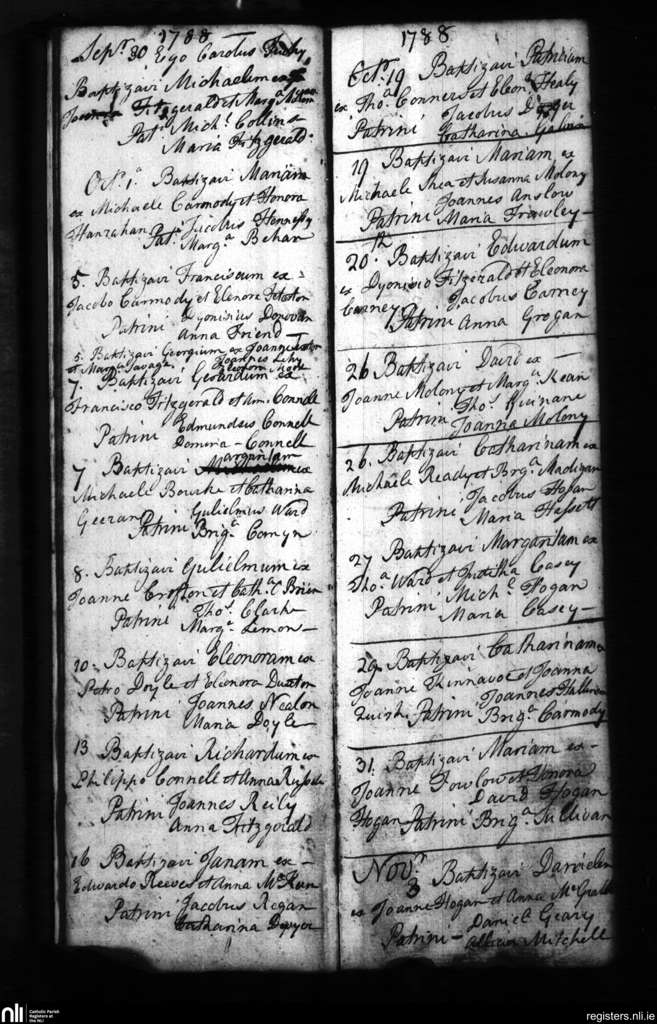 1788
Sepr 30 Ego Carolus
Baptizavi Michaelem ex
Fitzgerald et Marga
Pats Michl Collins
Maria Fitzgerald
Octr 1a Baptizavi Mariam
ex Michaele Carmody et Honora
Hanrahan Pats Jacobus Hennessy
Marga Behan
5. Baptizavi Franciscum ex
Jacobo Carmody et Elenora
Patrini Dyonisius Donovan
Anna Friend
5. Baptizavi Georgium ex Joanne
et Marga Savage Joannes Lehy
Eleonora Moore
7. Baptizavi Gerardum ex
Francisco Fitzgerald et Connell
Patrini Edmundus Connell
Domina Connell
Margaritam
7 Baptizavi ex
Michaele Bourke et Catharina
Geeran Gulielmus Ward
Patrini Briga Comyn
8. Baptizavi Gulielmum ex
Joanne Crofton et Catha O Brien
Patrini Thos Clark
Marga Limon
10. Baptizavi Eleonoram ex
Petro Doyle et Elenora
Patrini Joannes Nealon
Maria Doyle
13 Baptizavi Richardum ex
Philippo Connell et Anna
Patrini Joannes Reily
Anna Fitzgerald
16 Baptizavi Janam ex
Edwardo Reeves et Anna
Patrini Jacobus Regan
Catharina Dwyer
1788
Octr 19 Baptizavi Patricium
ex Thos Conners et Eleonr Healy
Patrini Jacobus
Catharina Galvin
19 Baptizavi Mariam ex
Michaele Shea et Susanna Molony
Joannes Anslow
Patrini Maria Frawley
20th Baptizavi Edwardum
ex Dyonisio Fitzgerald et Eleonora
Carney Jacobus Carney
Patrini Anna Grogan
26 Baptizavi David ex
Joanne Molony et Marga Kean
Patrini Thos Quinane
Joanna Molony
26. Baptizavi Catharinam ex
Michaele Ready et Briga Madigan
Jacobus Hogan
Patrini Maria Hassett
27 Baptizavi Margaritam ex
Thos Ward et Juditha Casey
Patrini Michl Hogan
Maria Casey
29 Baptizavi Catharinam ex
Joanne Kinnavot et Joanna
Joannes
Patrini Briga Carmody
31. Baptizavi Mariam ex
Joanne Fowlow et Honora
David Hogan
Hogan Patrini Briga Sullivan
Novr
3 Baptizavi Danielem
ex Joanne Hogan et Anna McGrath
Patrini Daniel Geary
Mitchell
nli
Catholic Parish
Registers at
the NLI
registers.nli.ie